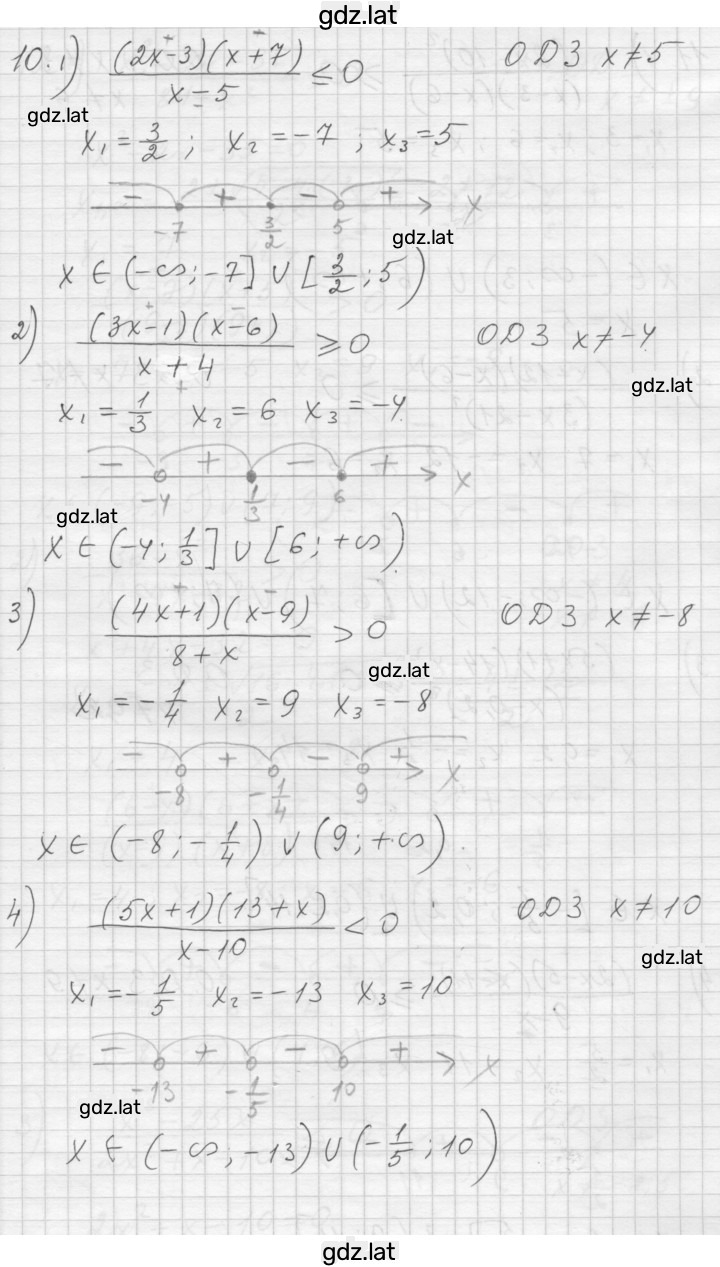 gdz.lat
10. 1) (2x-3)(x+7) / x-5 ≤ 0 ОДЗ x ≠ 5
gdz.lat
x₁ = 3/2 ; x₂ = -7 ; x₃ = 5
- + - + x
-7 3/2 5
gdz.lat
x ∈ (-∞; -7] ∪ [3/2; 5)
2) (3x-1)(x-6) / x+4 ≥ 0 ОДЗ x ≠ -4
gdz.lat
x₁ = 1/3 x₂ = 6 x₃ = -4
- + - + x
-4 1/3 6
gdz.lat
x ∈ (-4; 1/3] ∪ [6; +∞)
3) (4x+1)(x-9) / 8+x > 0 ОДЗ x ≠ -8
gdz.lat
x₁ = -1/4 x₂ = 9 x₃ = -8
- + - + x
-8 -1/4 9
x ∈ (-8; -1/4) ∪ (9; +∞)
4) (5x+1)(13+x) / x-10 < 0 ОДЗ x ≠ 10
gdz.lat
x₁ = -1/5 x₂ = -13 x₃ = 10
- + - + x
-13 -1/5 10
gdz.lat
x ∈ (-∞; -13) ∪ (-1/5; 10)
gdz.lat